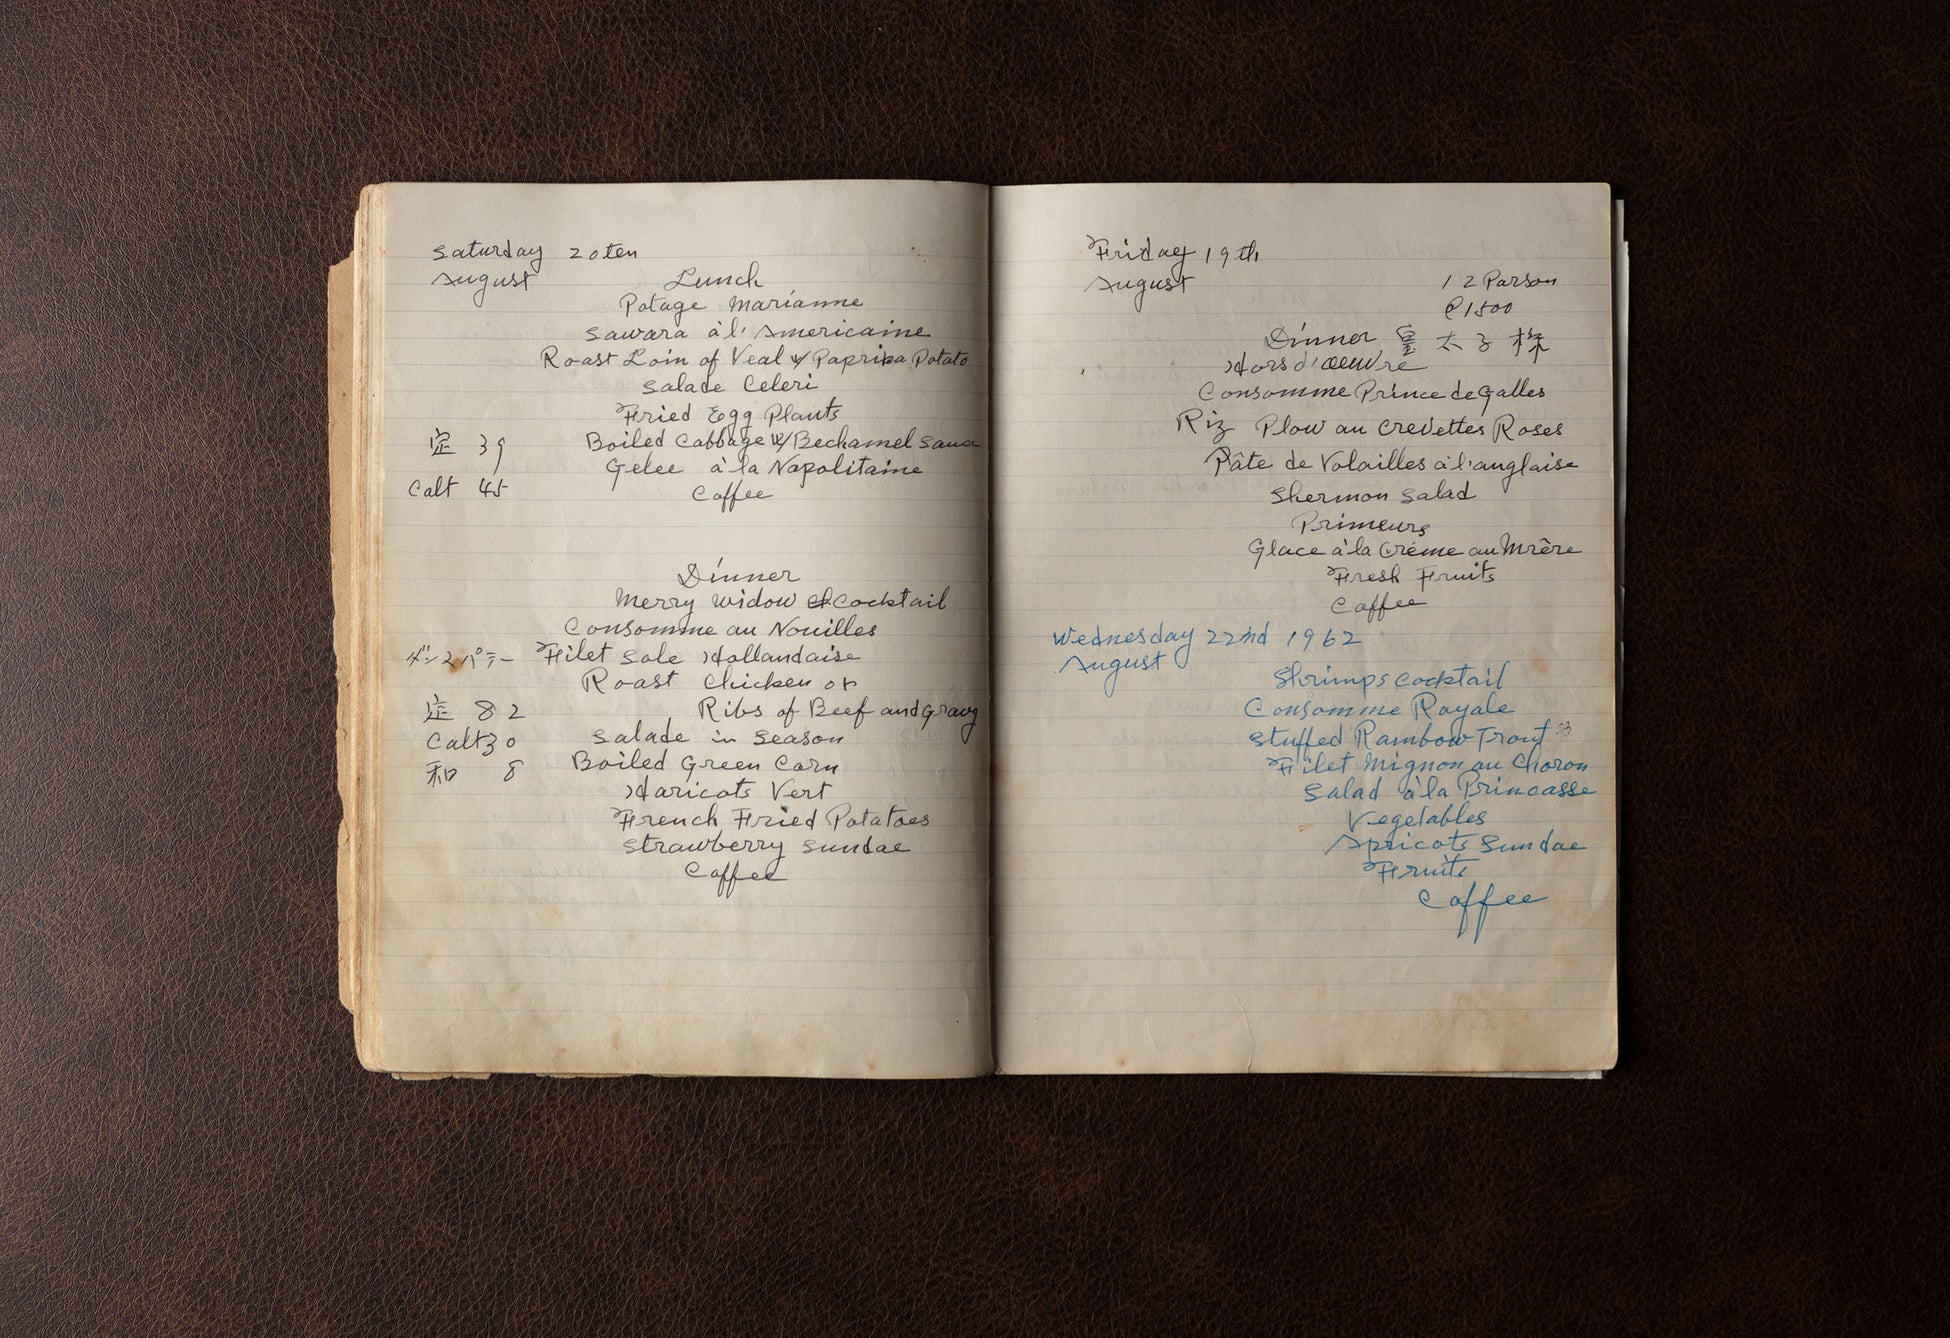 Saturday 20ten
August
Lunch
Potage Marianne
Sawara à l'Americaine
Roast Loin of Veal w/ Paprika Potato
Salade Celeri
Fried Egg Plants
定 39 Boiled Cabbage w/ Bechamel Sauce
Gelee à la Napolitaine
Calt 45 Coffee
Dinner
Merry Widow Cocktail
Consomme au Nouilles
ダンスパテー Filet Sole Hollandaise
Roast Chicken or
定 82 Ribs of Beef and Gravy
Calt 30 Salade in Season
和 8 Boiled Green Corn
Haricots Vert
French Fried Potatoes
Strawberry Sundae
Coffee
Friday 19th
August
12 Parson
@1500
Dinner 皇太子様
Hors d'oeuvre
Consomme Prince de Galles
Riz Plow au Crevettes Roses
Pâte de Volailles à l'anglaise
Shermon Salad
Primeurs
Glace à la Crême au Mrêre
Fresh Fruits
Coffee
Wednesday 22nd 1962
August
Shrimps Cocktail
Consomme Royale
Stuffed Rambow Trout
Filet Mignon au Choron
Salad à la Princasse
Vegetables
Apricots Sundae
Fruits
Coffee